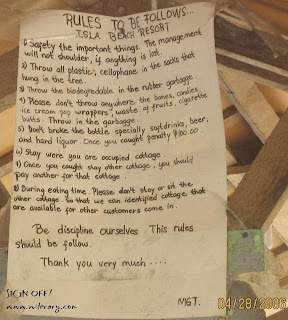 RULES TO BE FOLLOWS...
ISLA BEACH RESORT
1) Safety the important things. The management
will not shoulder, if anything is lost.
2) Throw all plastic, cellophane in the sacks that
hung in the tree.
3) Throw the biodegradable in the rubber garbage.
4) Please don't throw anywhere the bones, candies,
ice cream pop wrappers, waste of fruits, cigarette
butts. Throw in the garbage.
5) Don't broke the bottle specially softdrinks, beer,
and hard liquor. Once you caught penalty ₱100.00
6) Stay were you are occupied cottage.
7) Once you caught stay other cottage, you should
pay another for that cottage.
8) During eating time. Please don't stay or sit the
other cottage. So that we can identified cottage that
are available for other customers come in.
Be discipline ourselves This rules
should be follow.
Thank you very much ....
MGT.
SIGN OFF!
www.milerary.com
04/28/2006